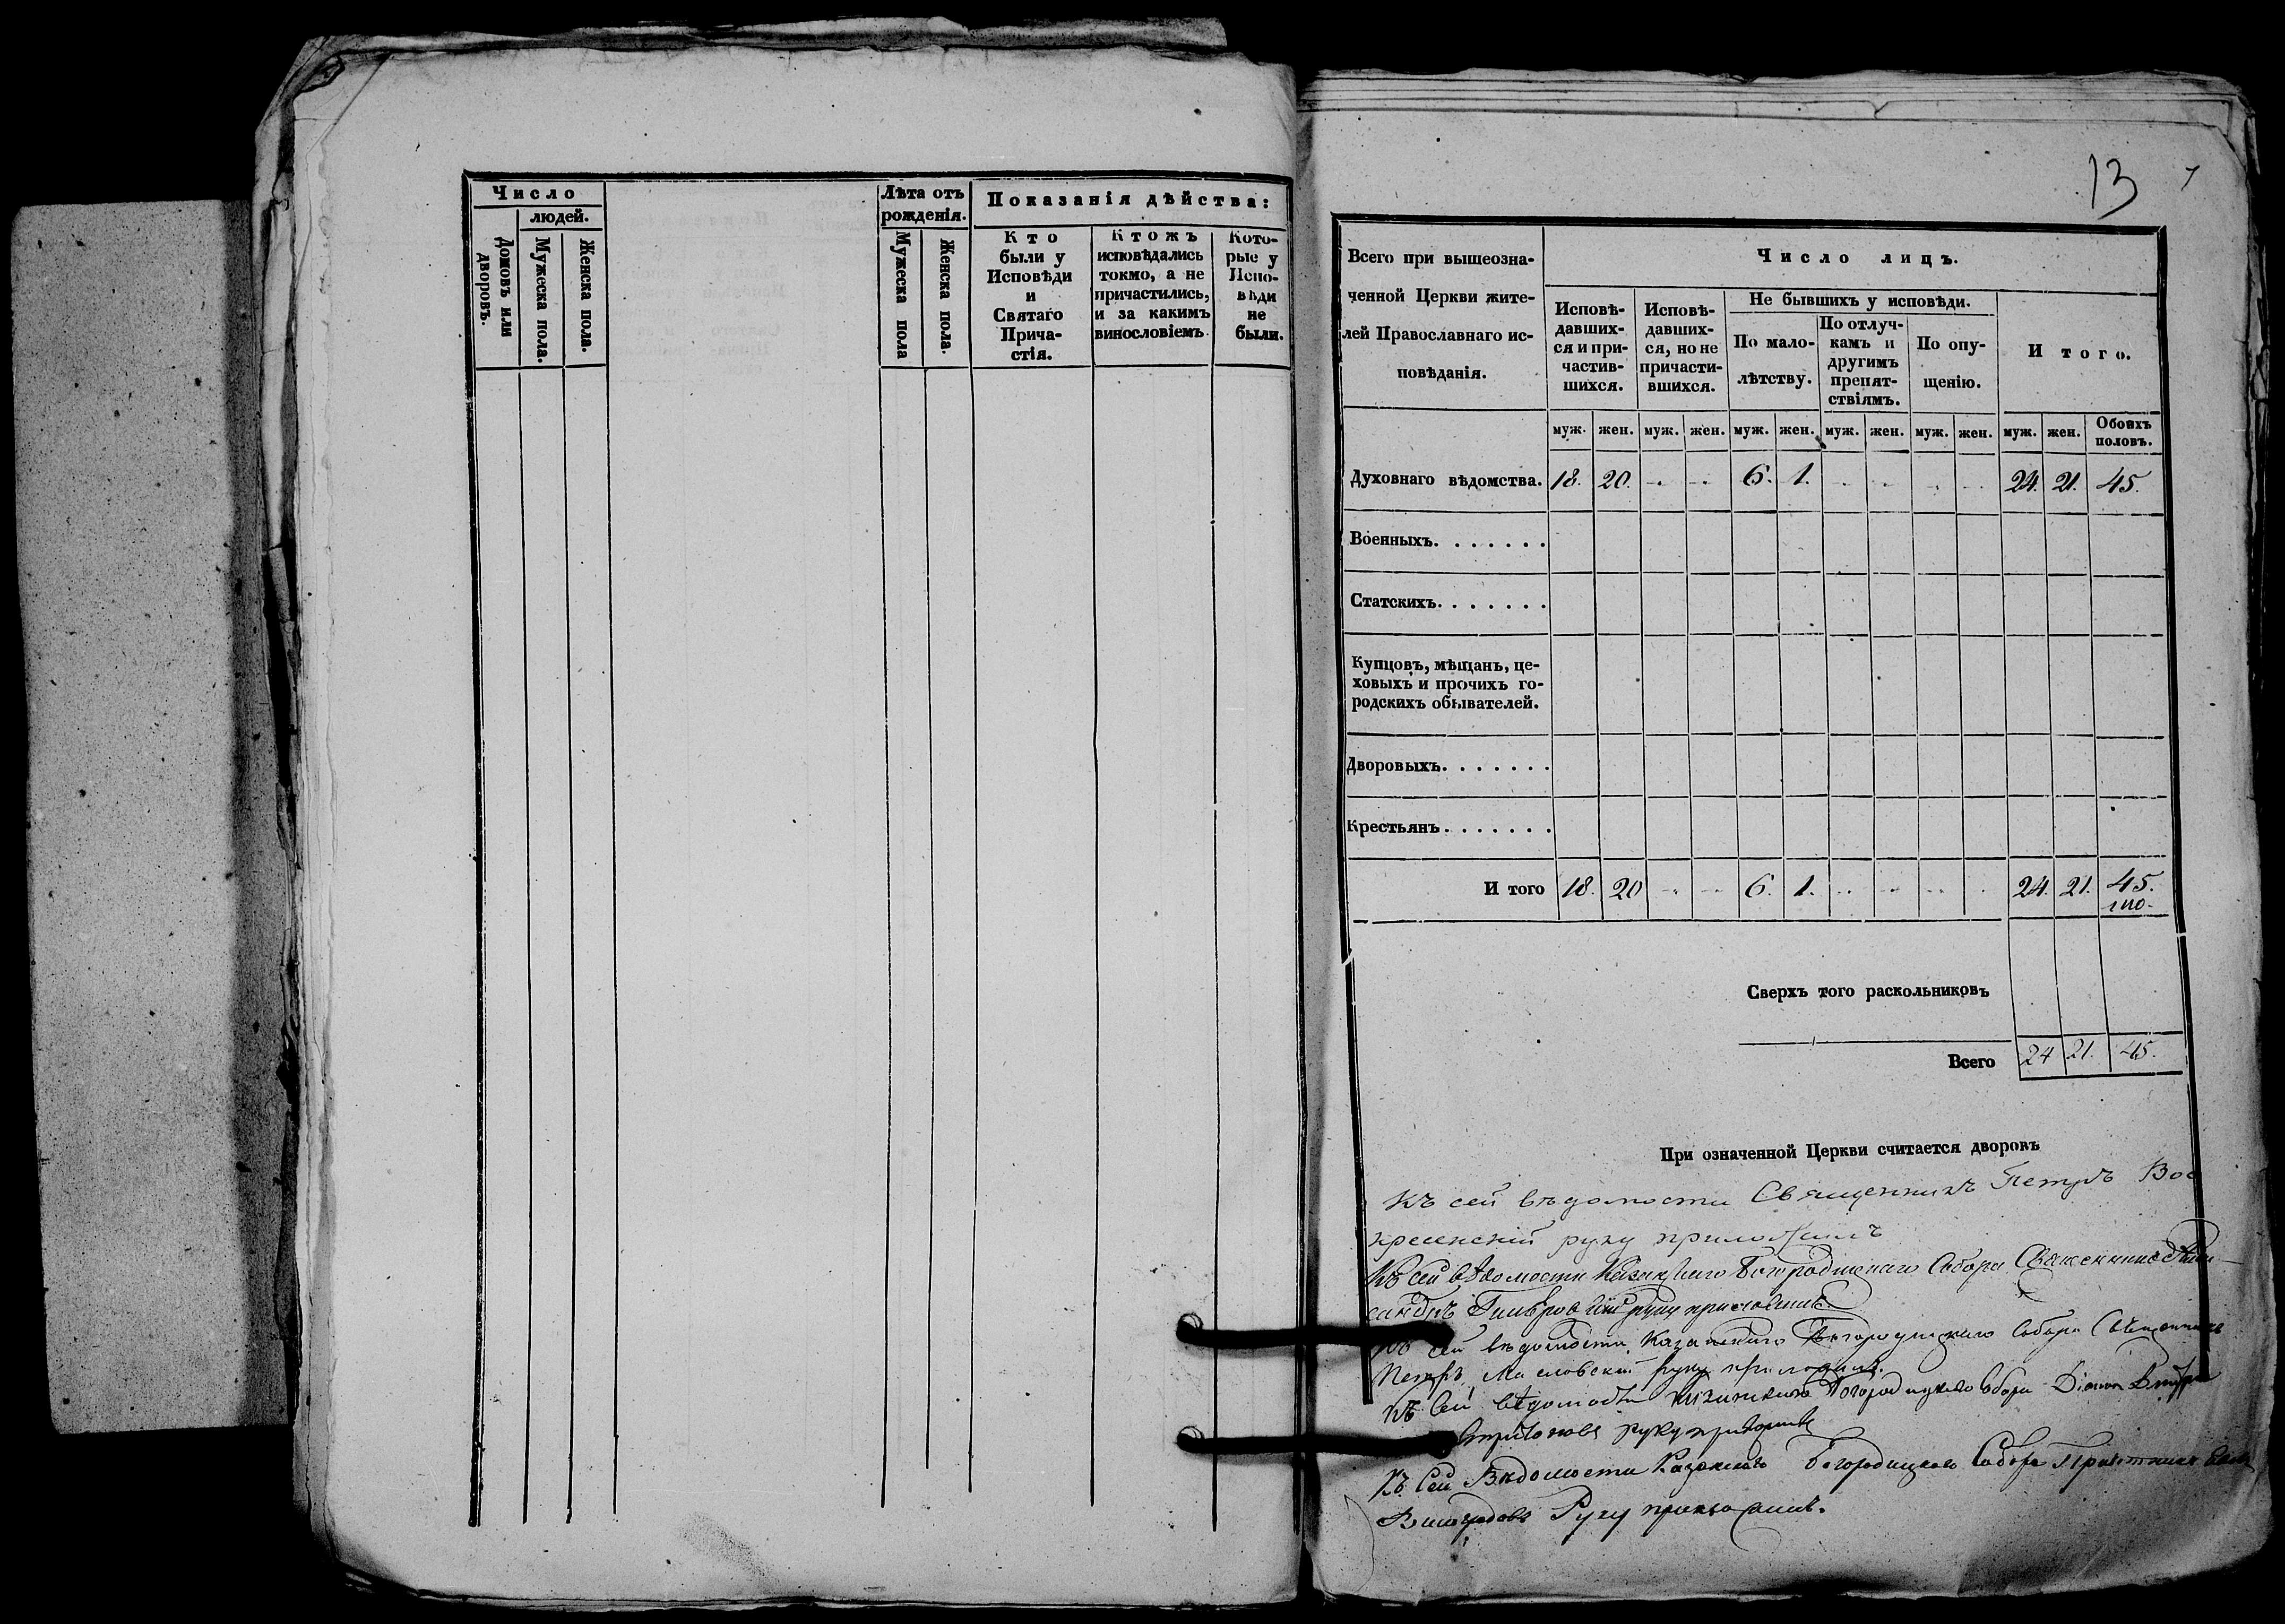 Число
людей.
Домовъ или дворовъ.
Мужеска пола.
Женска пола.
Лѣта отъ
рожденія.
Мужеска пола
Женска пола.
Показанія дѣйства:
Кто
были у
Исповѣди
и
Святаго
Прича-
стія.
Ктожъ
исповѣдались
токмо, а не
причастились,
и за какимъ
винословіемъ
Кото-
рые у
Испо-
вѣди
не
были.
13
Всего при вышеозна-
ченной Церкви жите-
лей Православнаго ис-
повѣданія.
Число лицъ.
Исповѣ-
давших-
ся и при-
частив-
шихся.
Исповѣ-
давших-
ся, но не
причасти-
вшихся.
Не бывшихъ у исповѣди.
По мало-
лѣтству.
По отлуч-
камъ и
другимъ
препят-
ствіямъ.
По опу-
щенію.
И того.
муж. жен. муж. жен. муж. жен. муж. жен. муж. жен. муж. жен. Обоихъ половъ.
Духовнаго вѣдомства. 18. 20. 6. 1. 24. 21. 45.
Военныхъ.......
Статскихъ.......
Купцовъ, мѣщанъ, це-
ховыхъ и прочихъ го-
родскихъ обывателей.
Дворовыхъ.......
Крестьянъ.......
И того 18. 20 6. 1. 24. 21. 45.
Сверхъ того раскольниковъ
Всего 24 21. 45.
При означенной Церкви считается дворовъ
Къ сей вѣдомости Священникъ Петръ Вос
кресенскій руку приложилъ
Къ сей вѣдомости Казанскаго Богородицкаго Собора Священникъ
руку приложилъ
Къ сей вѣдомости Казанскаго Богородицкаго Собора Священникъ
Петръ Масловскій руку приложилъ.
Къ сей вѣдомости Казанскаго Богородицкаго Собора Діаконъ
руку приложилъ
Къ сей Вѣдомости Казанскаго Богородицкаго Собора
Виноградовъ Руку приложилъ.